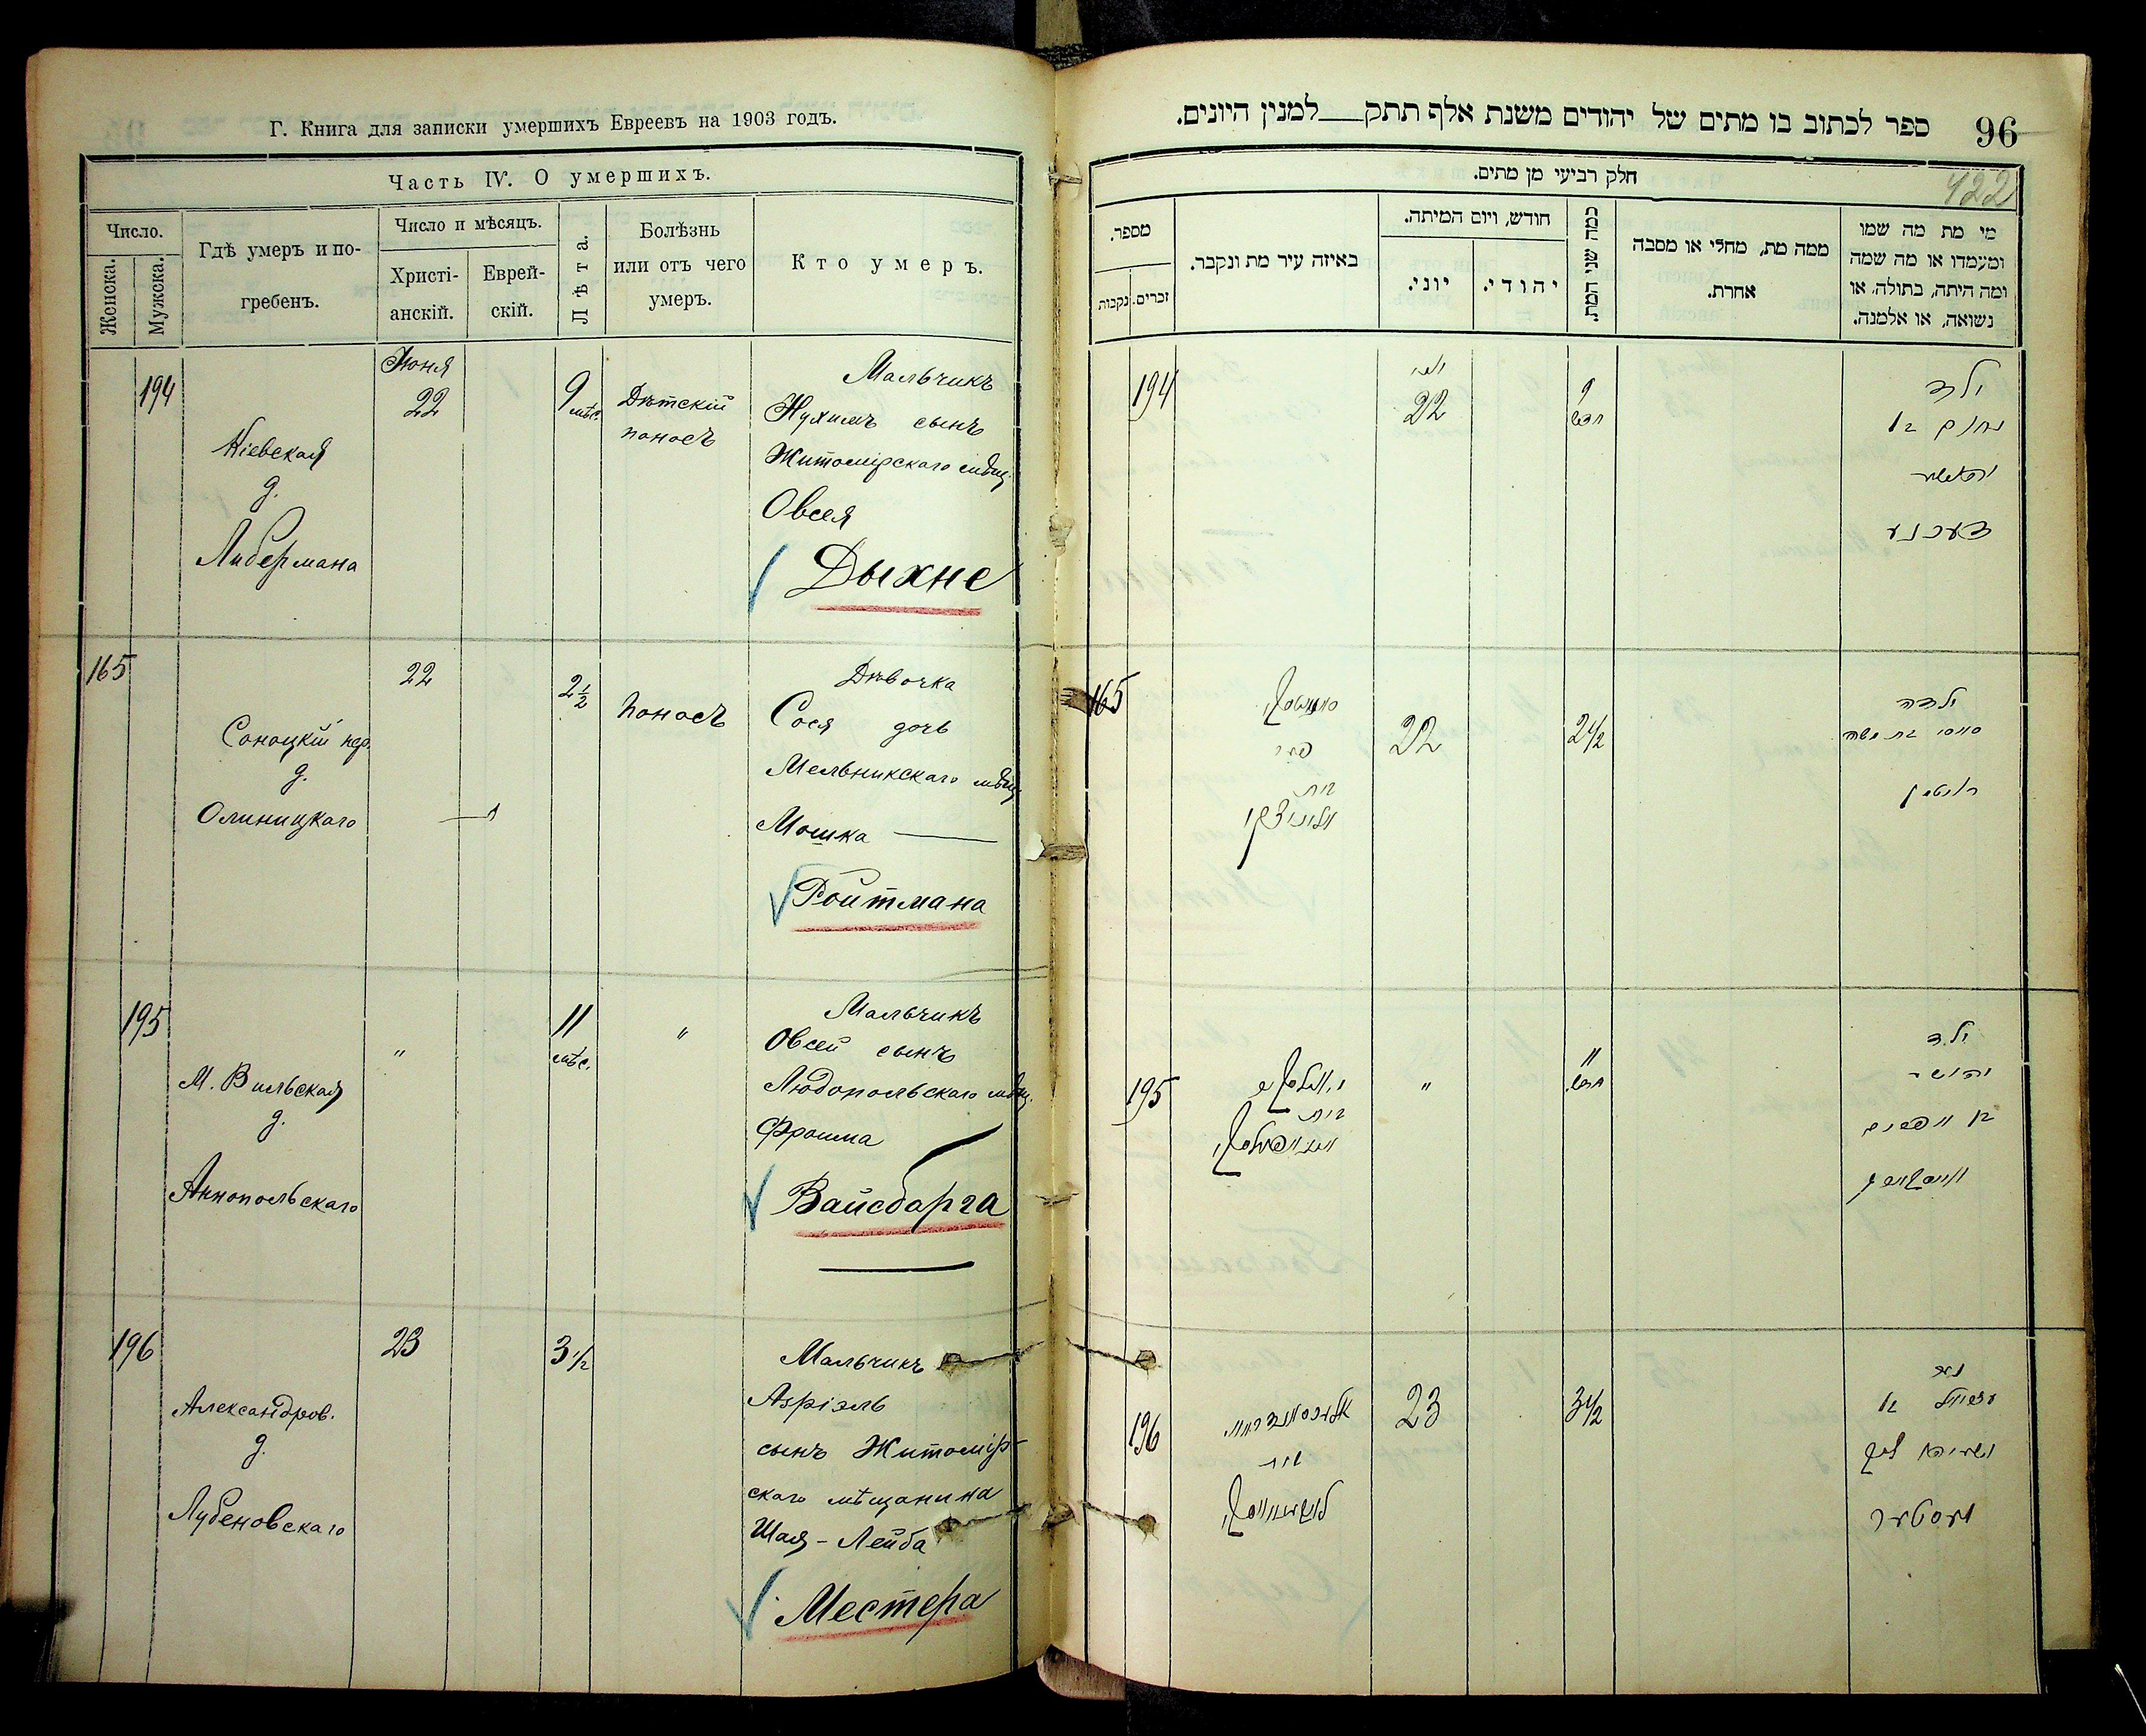 Г. Книга для записки умершихъ Евреевъ на 1903 годъ.
Часть IV. О умершихъ.
Число.
Женска.
Мужска.
Гдѣ умеръ и по-
гребенъ.
Число и мѣсяцъ.
Христі-
анскій.
Еврей-
скій.
Лѣта.
Болѣзнь
или отъ чего
умеръ.
Кто умеръ.
194
Кіевская
д.
Либермана
Іюня
22
9
мѣс.
Дѣтскій
поносъ
Мальчикъ
Нухимъ сынъ
Житомірскаго мѣщ.
Овсея
Дыхне
165
пер.
д.
Олиницкаго
22
2 1/2
поносъ
Дѣвочка
Сося дочь
Мельникскаго мѣщ.
Мошка
Ройтмана
195
М. Вильская
д.
Аннопольскаго
"
11
мѣс.
"
Мальчикъ
Овсей сынъ
Людопольскаго мѣщ.
Фроима
Вайсбарга
196
Александров.
д.
Лубеновскаго
23
3 1/2
Мальчикъ
Азріэль
сынъ Житомір-
скаго мѣщанина
Шая-Лейба
Местера
96
ספר לכתוב בו מתים של יהודים משנת אלף תתק למנין היונים.
422
חלק רביעי מן מתים.
מספר.
זכרים.
נקבות
באיזה עיר מת ונקבר.
חודש, ויום המיתה.
יוני.
יהודי.
כמה שני המת.
ממה מת, מחלי או מסבה
אחרת.
מי מת מה שמו
ומעמדו או מה שמה
ומה היתה, בתולה, או
נשואה, או אלמנה.
194
יוני
22
9
חדש
ילד
165
22
2 1/2
ילדה
רויטמן
195
בית
"
11
חדש
ילד
יהושע
196
בית
23
3 1/2
עזריאל בן
מעסטער